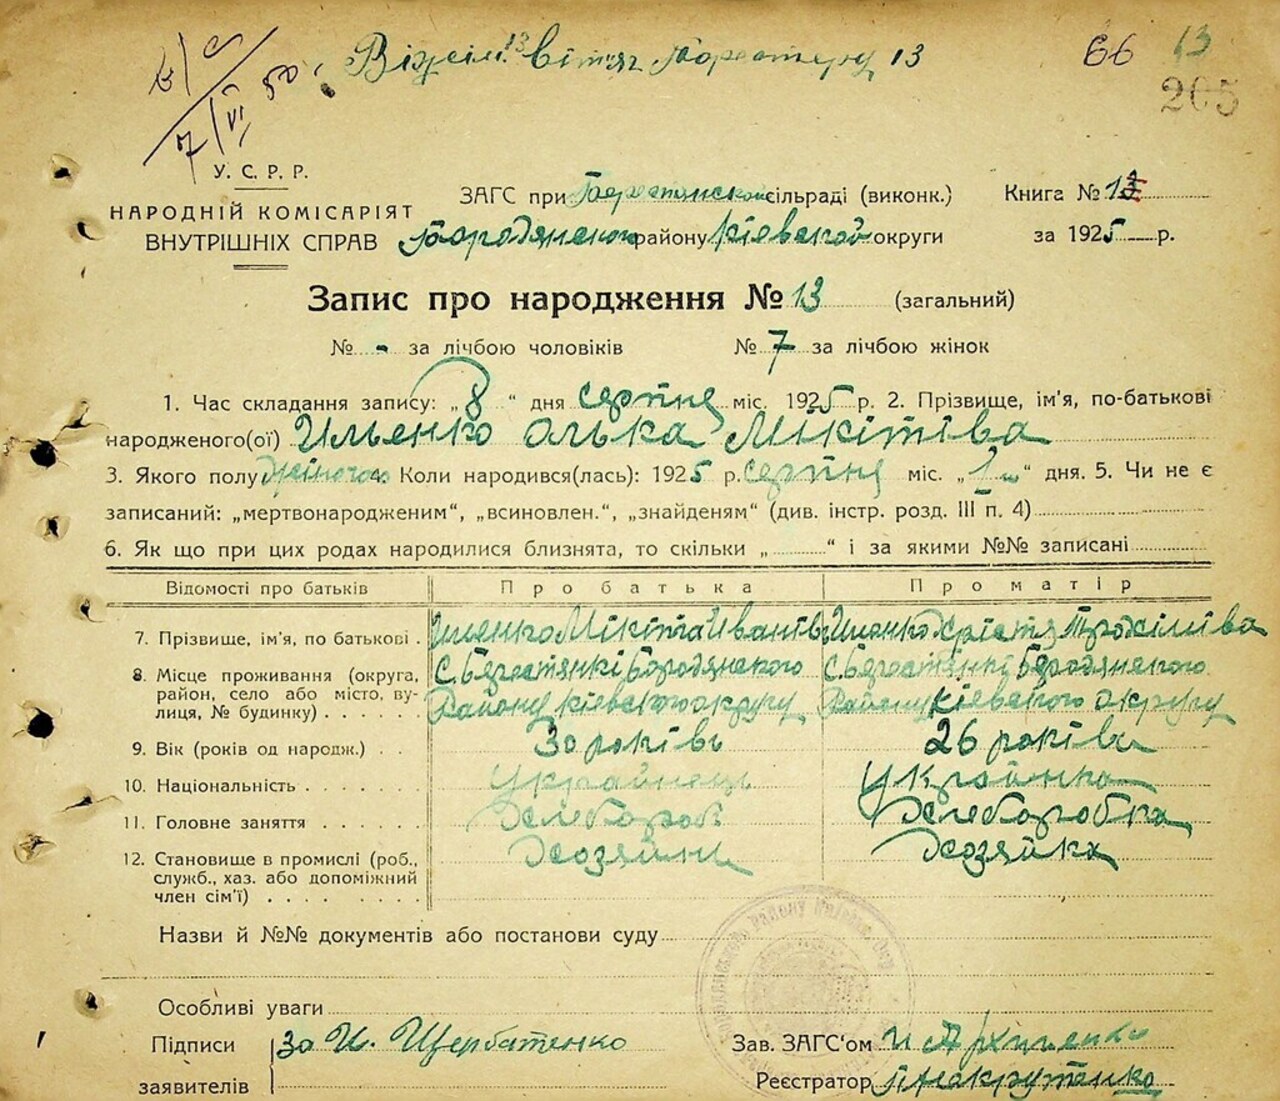 13
66 13
205
7/VI 50
У. С. Р. Р.
НАРОДНІЙ КОМІСАРІЯТ
ВНУТРІШНІХ СПРАВ
ЗАГС при сільраді (виконк.) Книга № 13
району Кіевской округи за 1925 р.
Запис про народження № 13 (загальний)
№ - за лічбою чоловіків № 7 за лічбою жінок
1. Час складання запису: „8“ дня серпня міс. 1925 р. 2. Прізвище, ім'я, по-батькові
народженого(ої) Ильенко Олька Мікітіва
3. Якого полу жіноча. Коли народився(лась): 1925 р. серпня міс. „1“ дня. 5. Чи не є
записаний: „мертвонародженим“, „всиновлен.“, „знайденям“ (див. інстр. розд. III п. 4)
6. Як що при цих родах народилися близнята, то скільки „ “ і за якими №№ записані
Відомості про батьків Про батька Про матір
7. Прізвище, ім'я, по батькові . Ильенко Мікіта Иванів Ильенко Хрістя Трохіміва
8. Місце проживання (округа, С. Берестянкі Бородянского С. Берестянкі Бородянского
район, село або місто, ву-
лиця, № будинку) . . . . . . Району Кіевского округу Району Кіевского округу
9. Вік (років од народж.) . . 30 років 26 років
10. Національність . . . . . . . Украйнець Украйнка
11. Головне заняття . . . . . . Хлебороб Хлеборобка
12. Становище в промислі (роб., Хозяйин Хозяйка
служб., хаз. або допоміжний
член сім'ї) . . . . . . . . .
Назви й №№ документів або постанови суду
Особливі уваги
Підписи За И. Щербатенко Зав. ЗАГС‘ом И Архипенко
заявителів Реєстратор